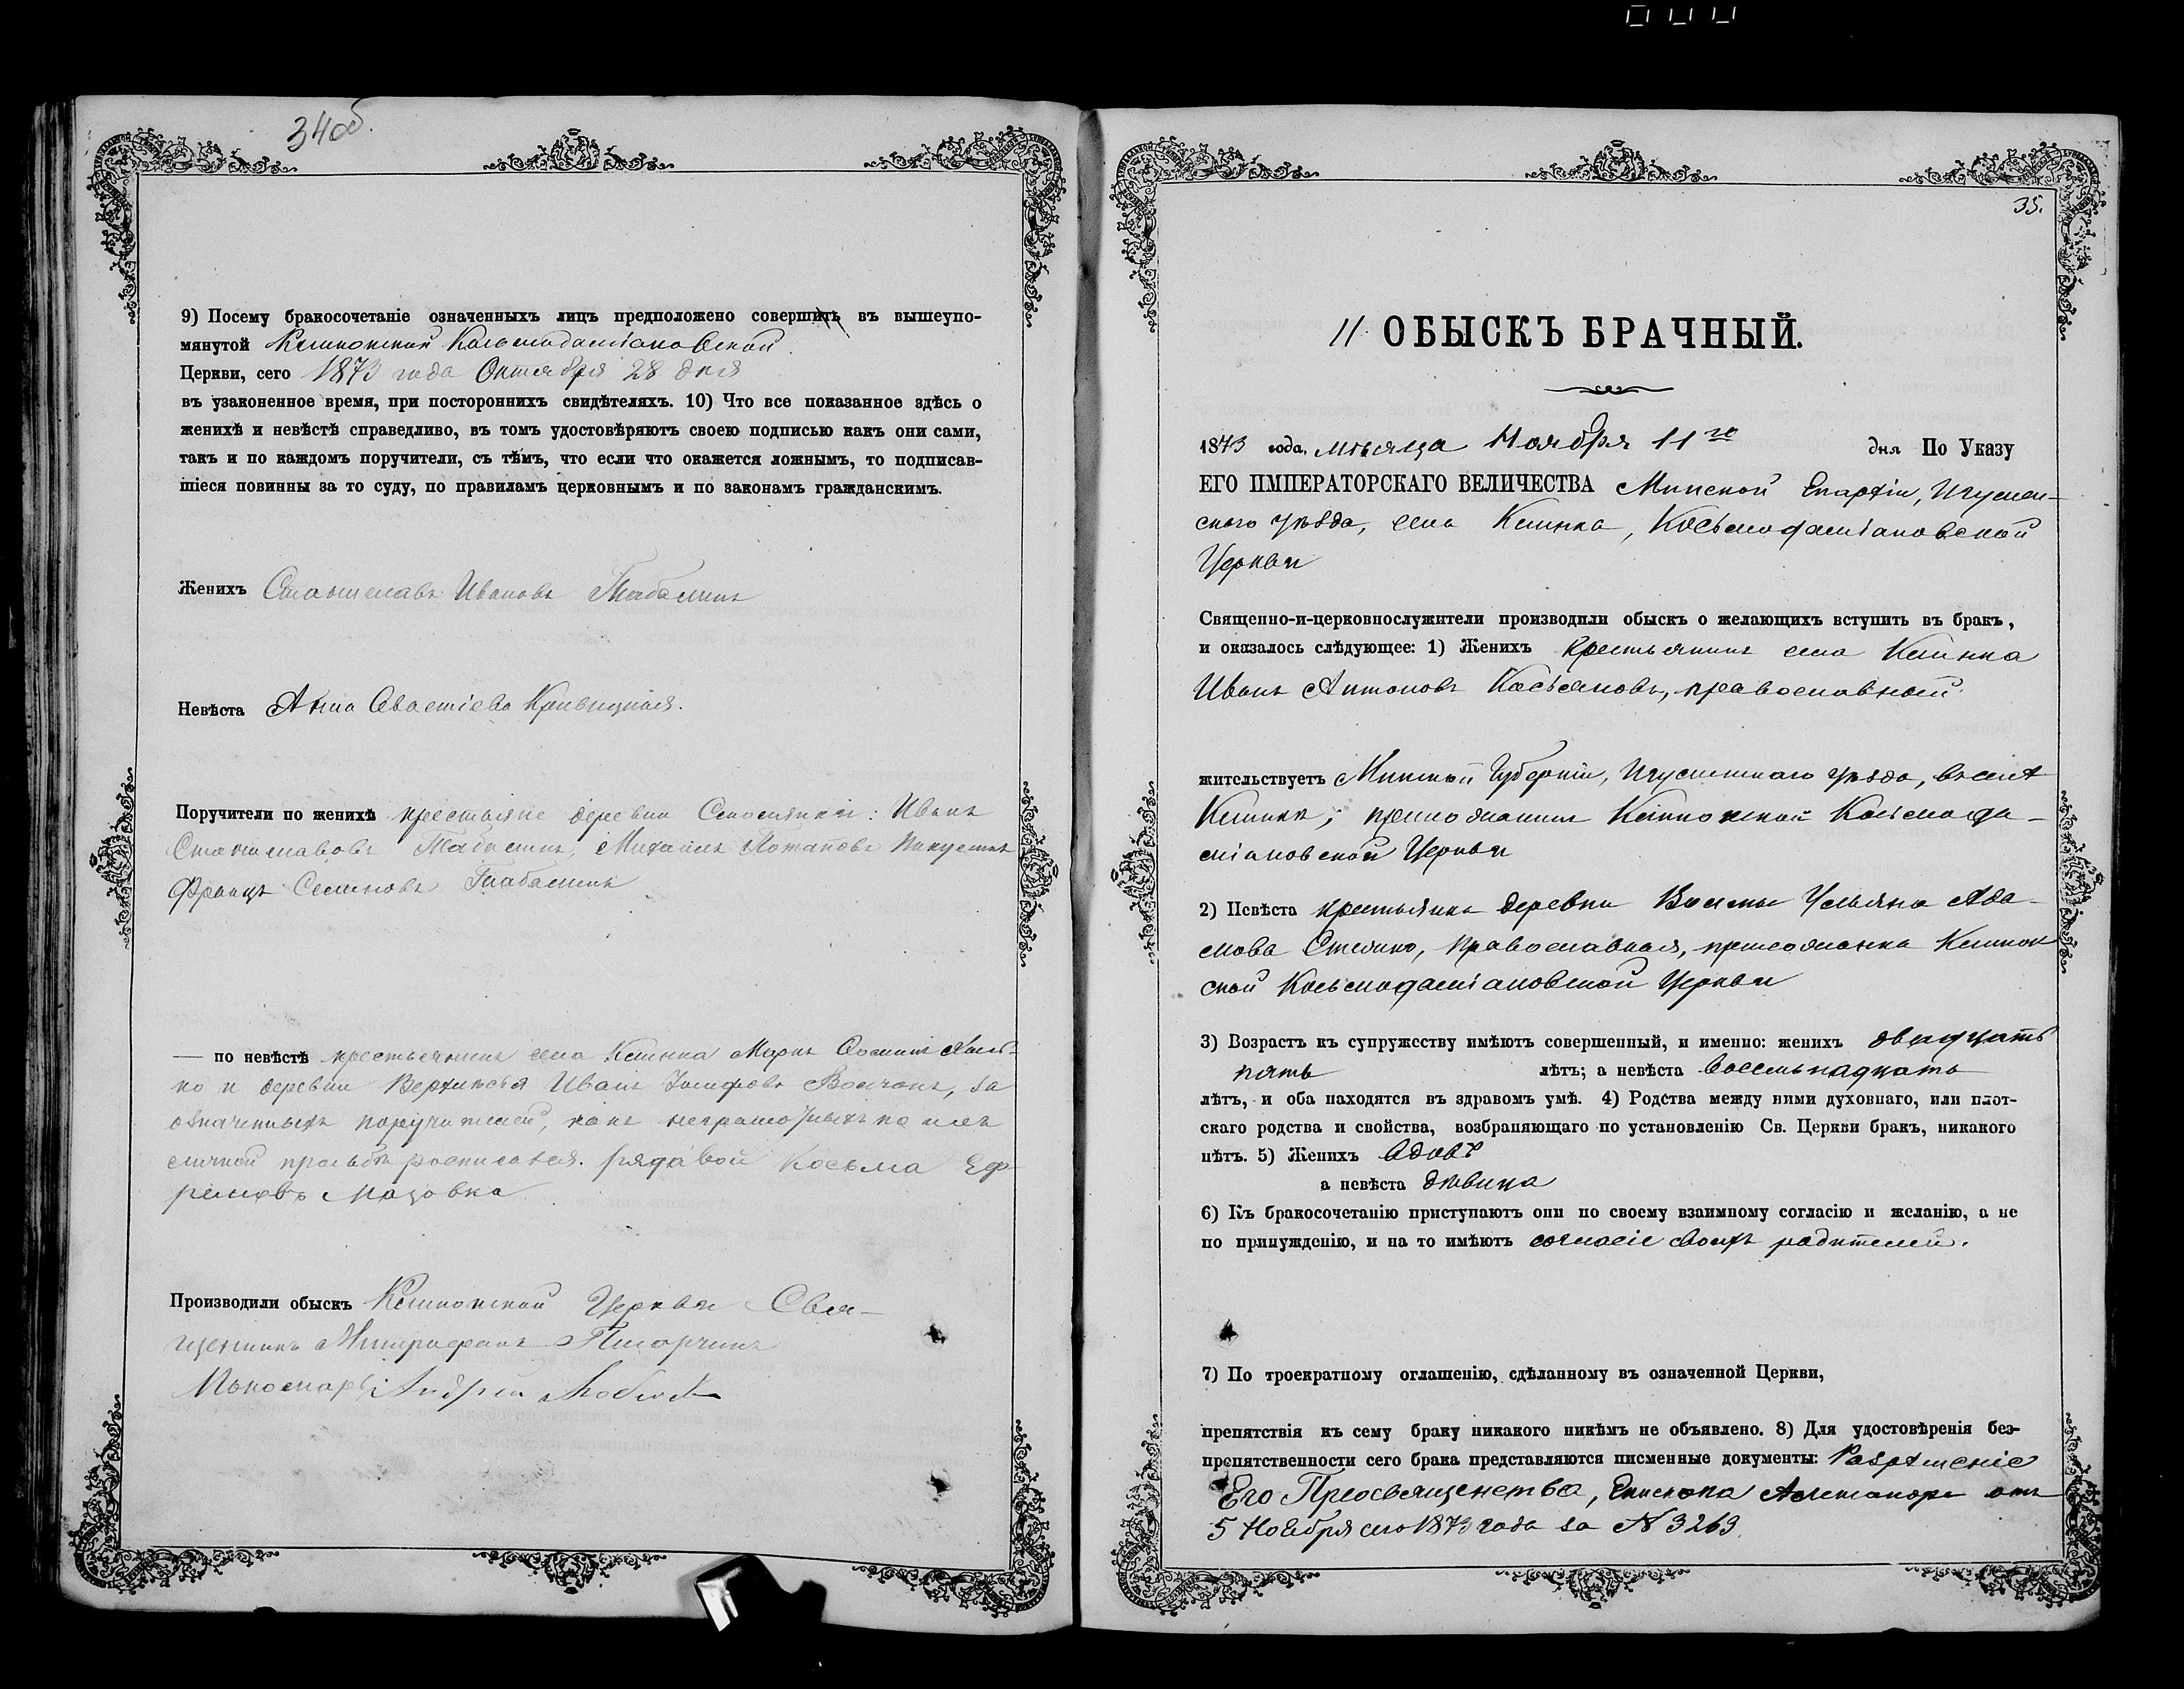 34об.
9) Посему бракосочетаніе означенныхъ лицъ предположено совершить въ вышеупо-
мянутой Клинокской Косьмодаміановской
Церкви, сего 1873 года Октября 28 дня
въ узаконенное время, при постороннихъ свидѣтеляхъ. 10) Что все показанное здѣсь о
женихѣ и невѣстѣ справедливо, въ томъ удостовѣряютъ своею подписью какъ они сами,
такъ и по каждомъ поручители, съ тѣмъ, что если что окажется ложнымъ, то подписав-
шіеся повинны за то суду, по правиламъ церковнымъ и по законамъ гражданскимъ.
Женихъ Станиславъ Ивановъ
Невѣста Анна Кривицкая.
Поручители по женихѣ крестьяне деревни Иванъ
Станиславовъ Михаилъ Потаповъ
Францъ Семеновъ
— по невѣстѣ крестьянинъ села Клинка Марко
и деревни Иванъ за
означенныхъ поручителей, какъ неграмотныхъ по ихъ
личной просьбѣ росписался. рядовой Косьма Еф-
ремовъ Мазовка
Производили обыскъ Клинокской Церкви Свя-
щенникъ Митрофанъ
Пономарь Андрей
35.
11. ОБЫСКЪ БРАЧНЫЙ.
1873 года, мѣсяца Ноября 11го дня По Указу
ЕГО ИМПЕРАТОРСКАГО ВЕЛИЧЕСТВА Минской Епархіи, Игумен-
скаго уѣзда, села Клинка, Косьмодаміановской
Церкви
Священно-и-церковнослужители производили обыскъ о желающихъ вступить въ бракъ,
и оказалось слѣдующее: 1) Женихъ крестьянинъ села Клинка
Иванъ Антоновъ Касьяновъ, православный.
жительствуетъ Минской Губерніи, Игуменскаго уѣзда, въ селѣ
Клинкѣ; прихожанинъ Клинокской Косьмода-
міановской Церкви
2) Невѣста крестьянка деревни Ульяна Ада-
мова православная, прихожанка Клинок-
ской Косьмодаміановской Церкви
3) Возрастъ къ супружеству имѣютъ совершенный, и именно: женихъ двадцать
пять лѣтъ; а невѣста восемьнадцать
лѣтъ, и оба находятся въ здравомъ умѣ. 4) Родства между ними духовнаго, или плот-
скаго родства и свойства, возбраняющаго по установленію Св. Церкви бракъ, никакого
нѣтъ. 5) Женихъ вдовъ
а невѣста дѣвица
6) Къ бракосочетанію приступаютъ они по своему взаимному согласію и желанію, а не
по принужденію, и на то имѣютъ согласіе своихъ родителей.
7) По троекратному оглашенію, сдѣланному въ означенной Церкви,
препятствія къ сему браку никакого никѣмъ не объявлено. 8) Для удостовѣренія без-
препятственности сего брака представляются писменные документы: Разрѣшеніе
Его Преосвященства, Епископа Александра отъ
5 Ноября сего 1873 года за № 3263.